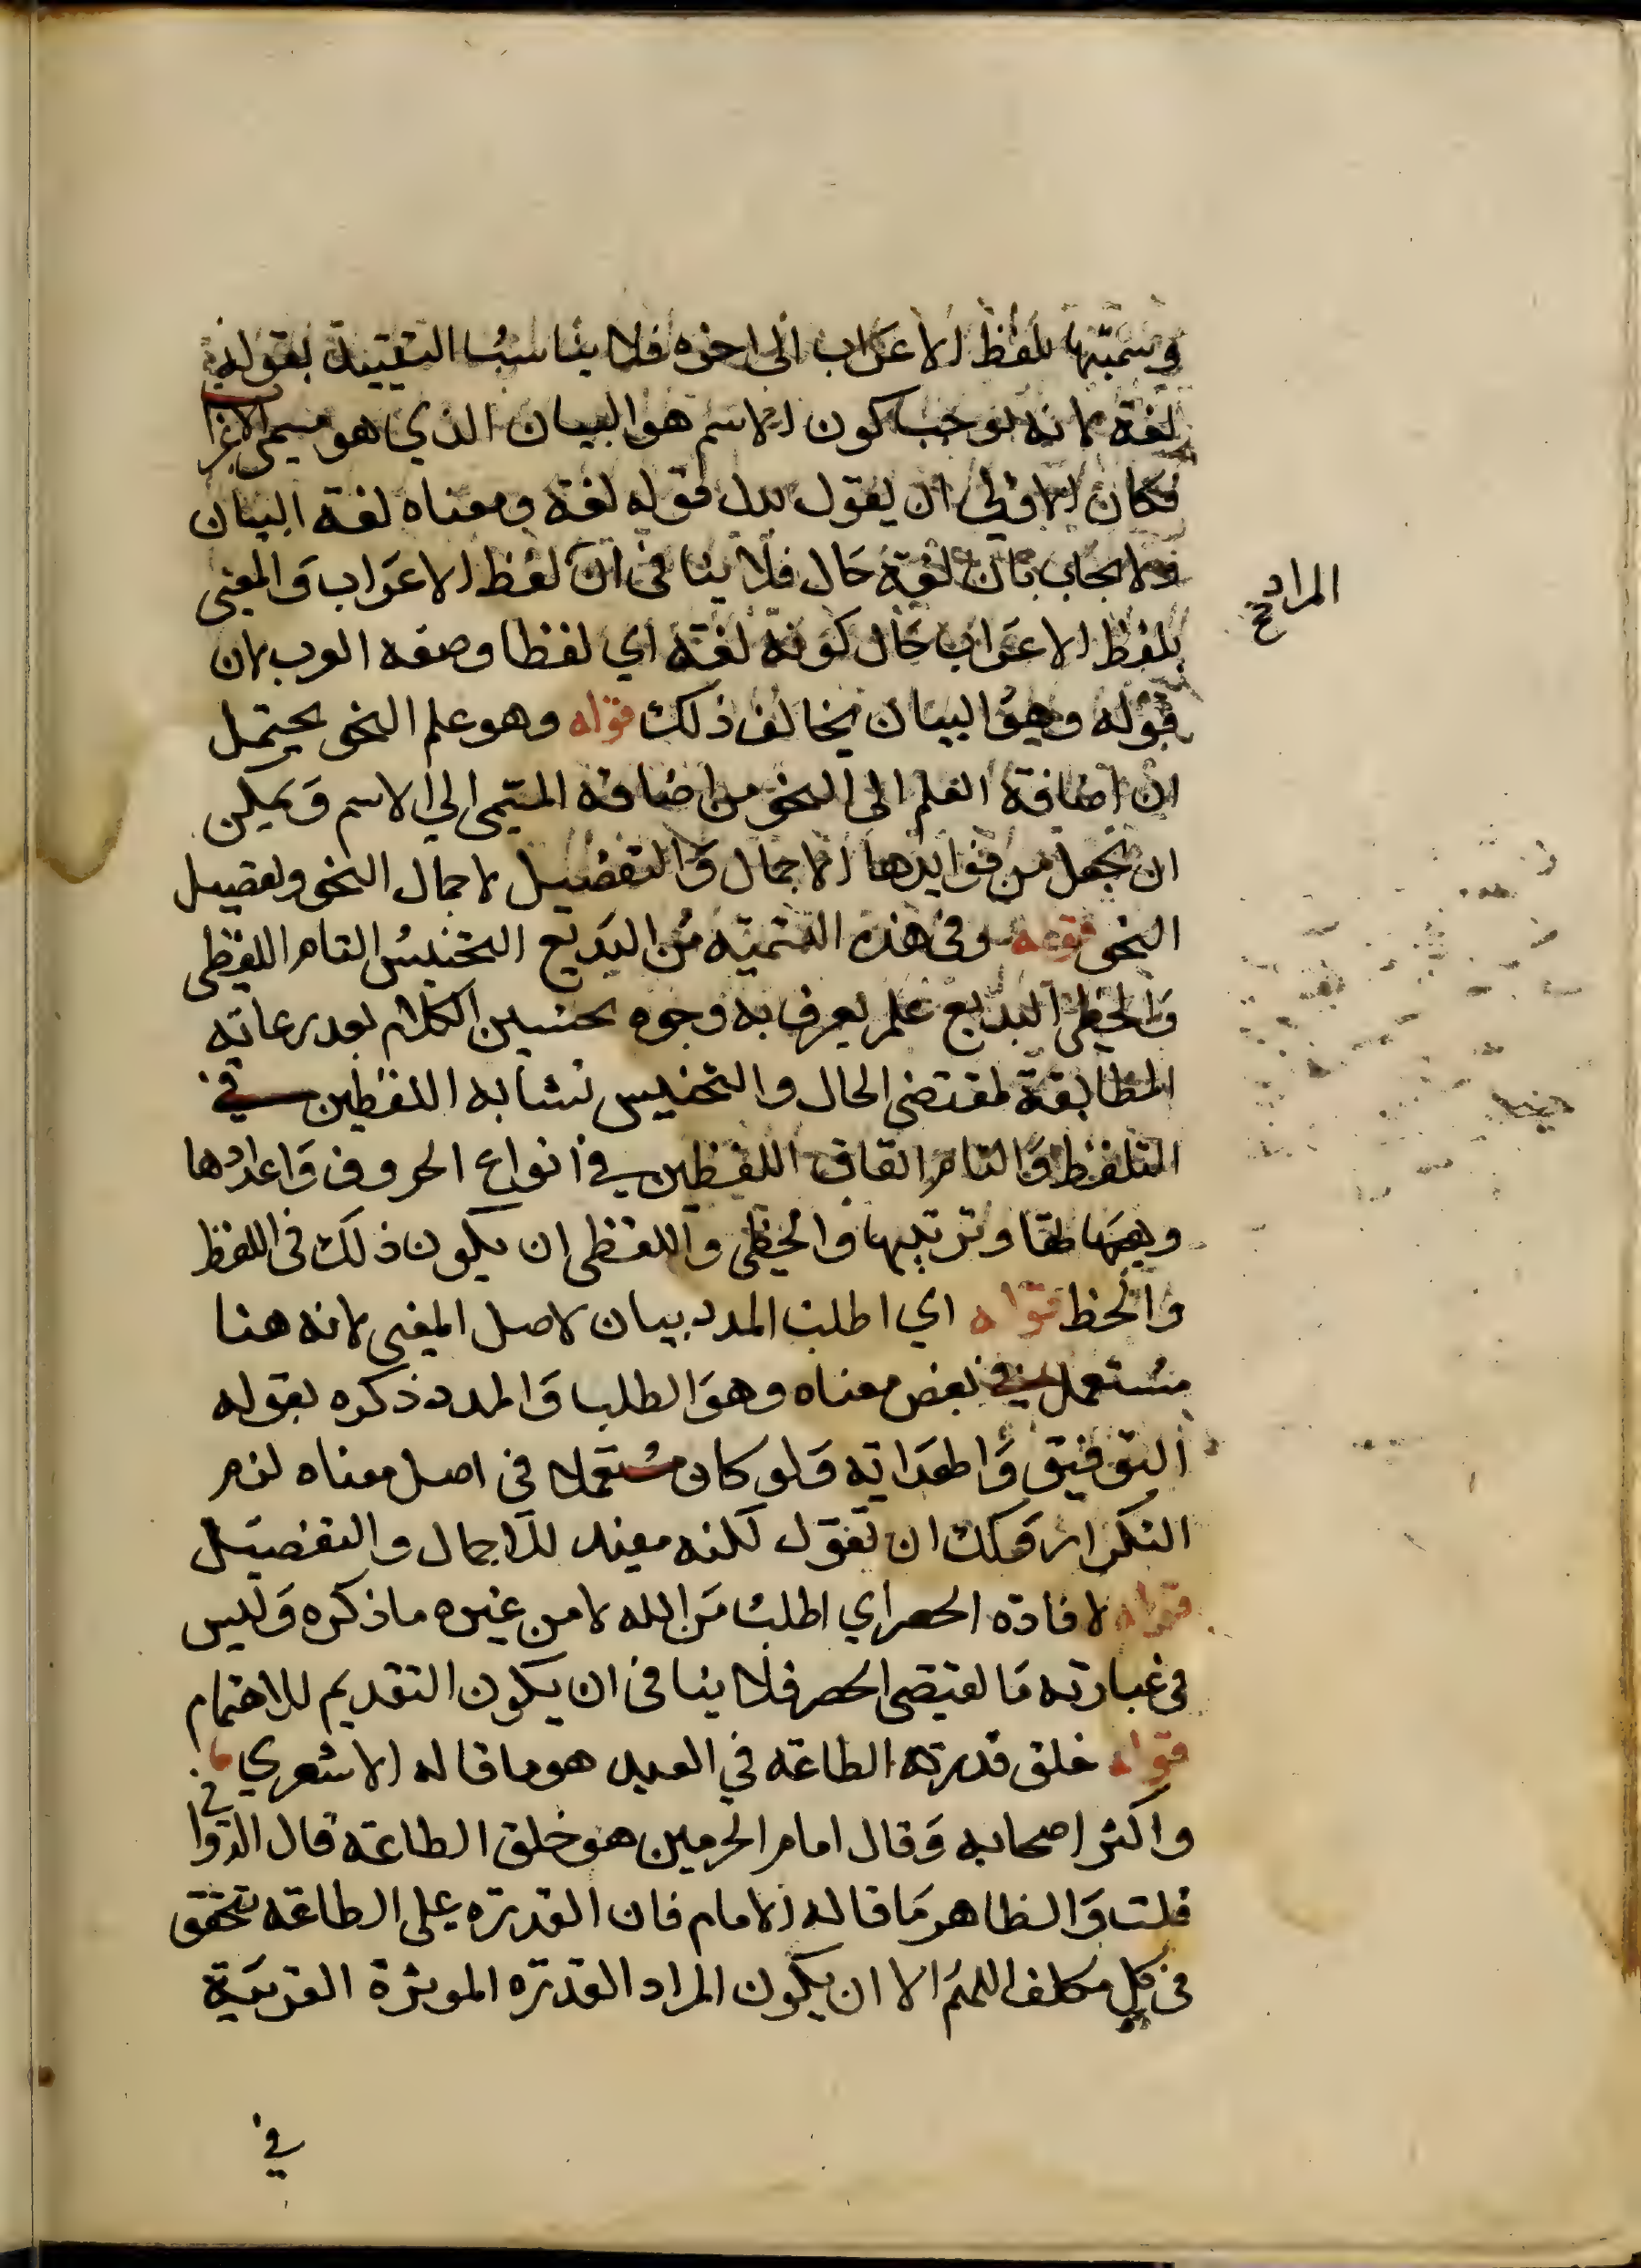 وسميتها بلفظ الاعراب الى اخره فلا يناسب التقييد بقوله
لغة لانه يوجب كون الاسم هو البيان الذي هو مسمى الاعرا
فكان الاولى ان يقول بدل قوله لغة ومعناه لغة البيان
ولا يجاب بان لغة حال فلا ينافى ان لفظ الاعراب والمعنى
المراد صح
بلفظ الاعراب حال كونه لغة اي لفظا وصفه العرب لان
قوله وهو البيان يخالف ذلك قوله وهو علم النحو يحتمل
ان اضافة العلم الى النحو من اضافة المسمى الى الاسم ويمكن
ان نجعل من فوايدها الاجمال والتفضيل لاجمال النحو وتفصيل
النحو قوله وفى هذه التسميه من البديع التجنيس التام اللفظى
والخطى البديع علم يعرف به وجوه تحسين الكلام بعد رعايه
المطابقة لمقتضى الحال والتجنيس تشابه اللفظين في
التلفظ والتام اتفاق اللفظين في انواع الحروف واعدادها
وهيئها وترتيبها والخطى واللفظى ان يكون ذلك فى اللفظ
والخط قوله اي اطلب المدد بيان لاصل المعنى لانه هنا
مستعمل في بعض معناه وهو الطلب والمدد ذكره بقوله
التوفيق والهدايه ولو كان مستعملا فى اصل معناه لزم
التكرار ولك ان تقول لكنه مفيد للاجمال والتفصيل
قوله لافادة الحصر اي اطلب من الله لا من غيره ما ذكره وليس
فى عبارته ما يقتضى الحصر فلا ينافى ان يكون التقديم للاهتمام
قوله خلق قدرة الطاعة في العبد هو ما قاله الاشعري
واكثر اصحابه وقال امام الحرمين هو خلق الطاعة قال الدوانى
قلت والظاهر ما قاله الامام فان القدرة على الطاعه تتحقق
فى كل مكلف اللهم الا ان يكون المراد القدرة الموثرة القريبة
في